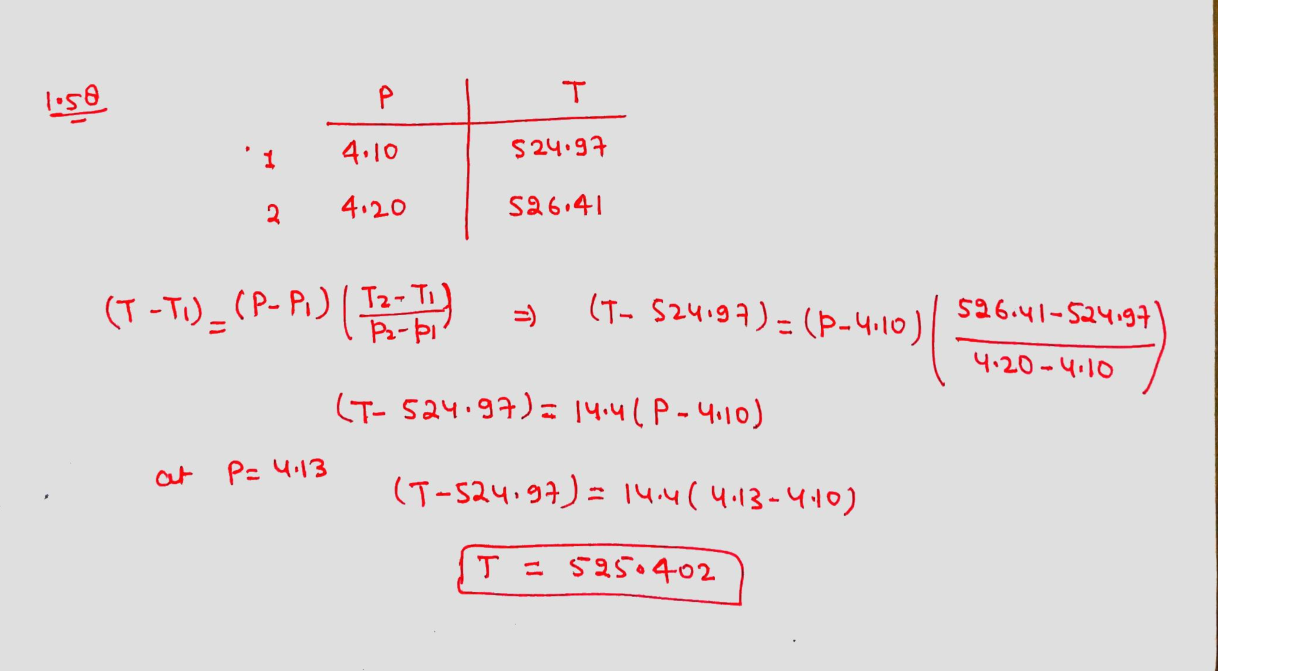 1.58
P T
1 4.10 524.97
2 4.20 526.41
(T - T1) = (P - P1) ( T2 - T1 / P2 - P1 ) ⇒ (T - 524.97) = (P - 4.10) ( 526.41 - 524.97 / 4.20 - 4.10 )
(T - 524.97) = 14.4 ( P - 4.10)
at P = 4.13
(T - 524.97) = 14.4 ( 4.13 - 4.10)
T = 525.402